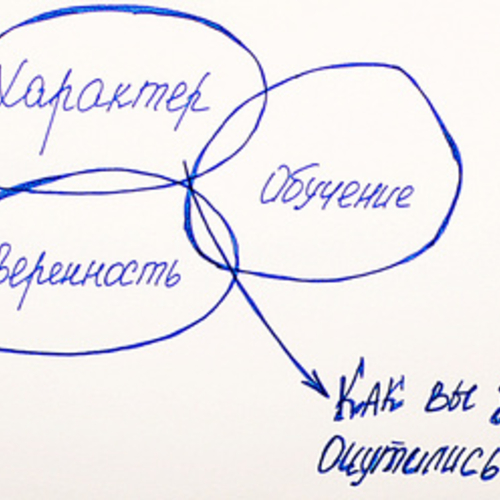 Характер
Обучение
веренность
Как вы
Ощутились